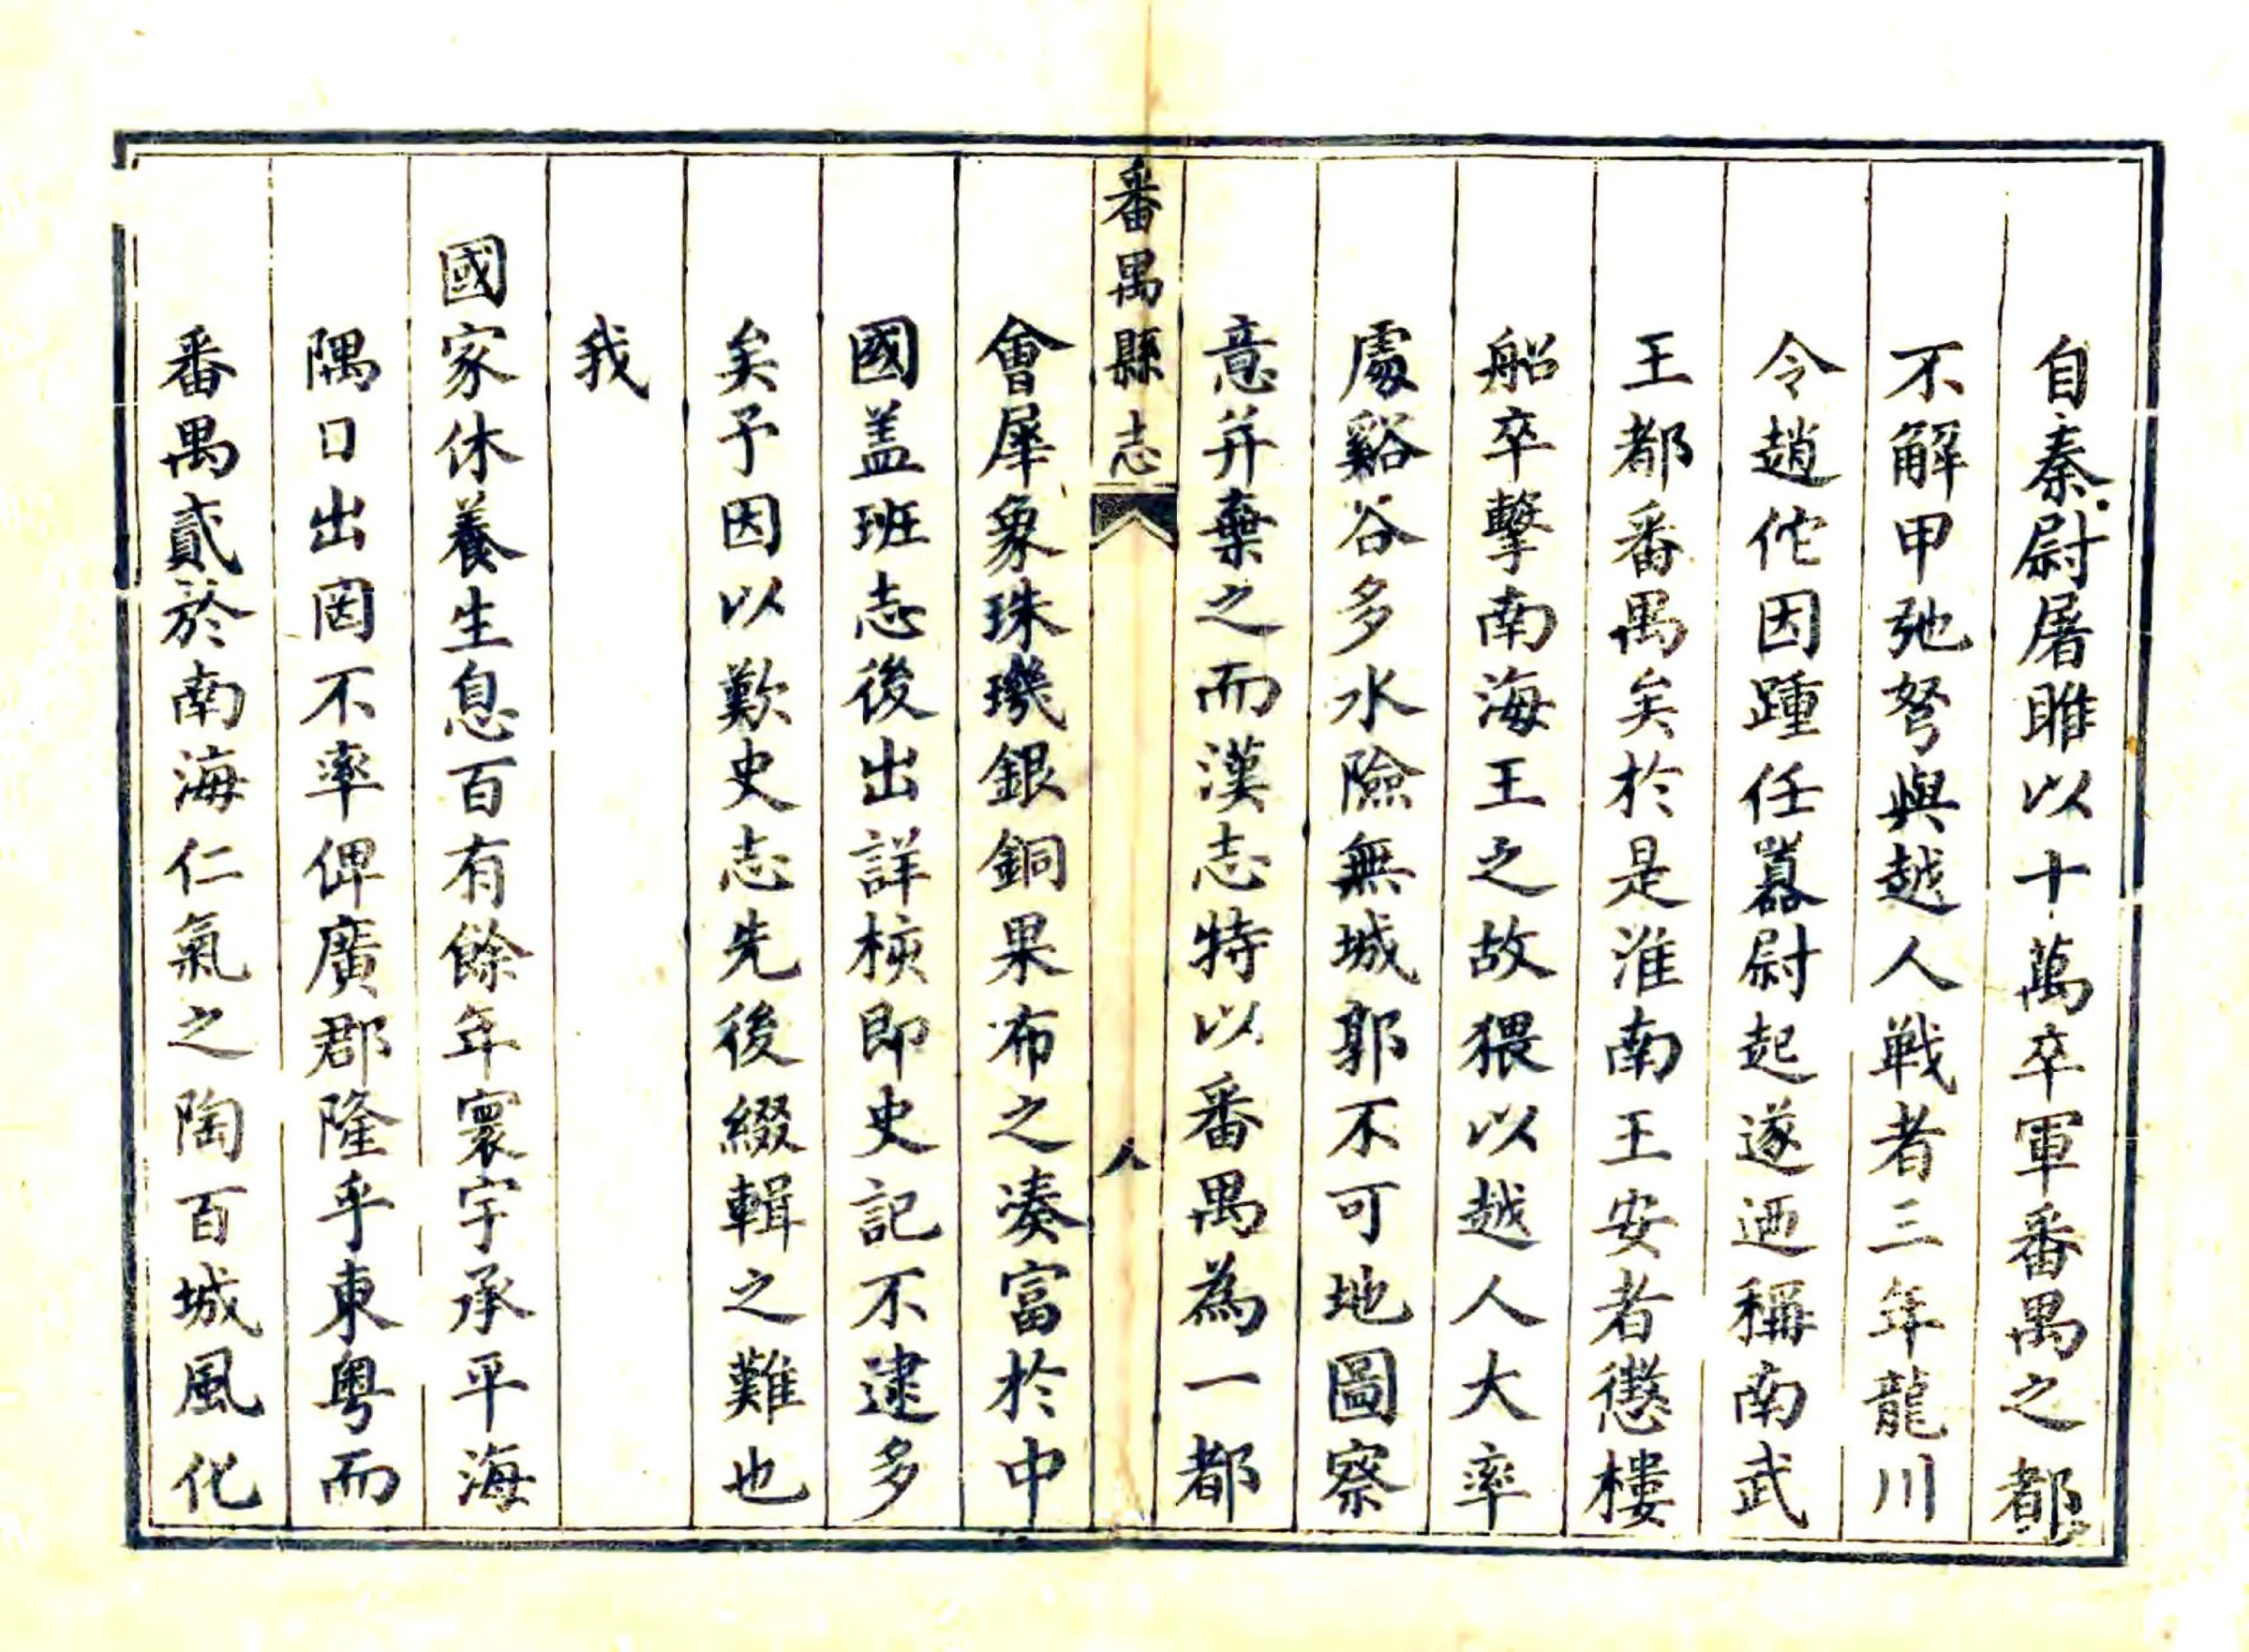 自秦尉屠睢以十萬卒軍番禺之都
不解甲弛弩與越人戰者三年龍川
令趙佗因踵任囂尉起遂迺稱南武
王都番禺矣於是淮南王安者懲樓
船卒擊南海王之故猥以越人大率
處谿谷多水險無城郭不可地圖察
意并棄之而漢志特以番禺為一都
番禺縣志
人
會犀象珠璣銀銅果布之凑富於中
國盖班志後出詳核即史記不逮多
矣予因以歎史志先後綴輯之難也
我
國家休養生息百有餘年寰宇承平海
隅日出罔不率俾廣郡隆乎東粤而
番禺貳於南海仁氣之陶百城風化